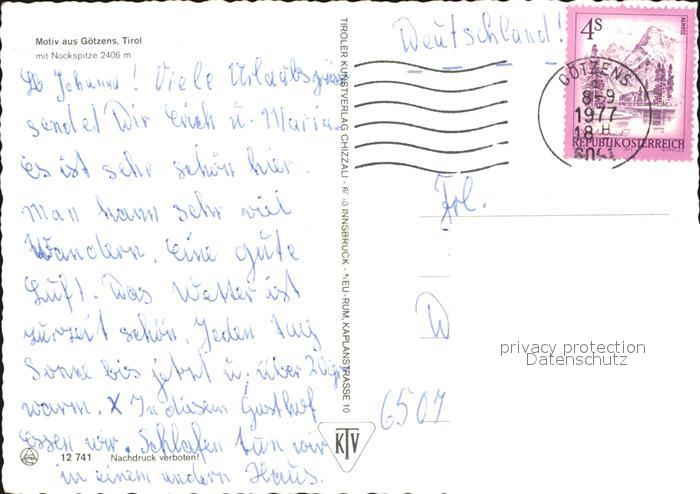 Motiv aus Götzens, Tirol
mit Nockspitze 2406 m
Lb Johanna! Viele Urlaubsgrüße
sendet Dir Erich u. Maria.
Es ist sehr schön hier.
Man kann sehr viel
Wandern. Eine gute
Luft. Das Wetter ist
zurzeit schön. Jeden Tag
Sonne bis jetzt u. über 20
warm. X In diesem Gasthof
Essen wir. Schlafen tun wir
in einem andern Haus.
12 741 Nachdruck verboten!
TIROLER KUNSTVERLAG CHIZZALI · INNSBRUCK - NEU-RUM, KAPLANSTRASSE 10
KTV
Deutschland!
4S
ALMSEE
REPUBLIK ÖSTERREICH
GÖTZENS
8-9
1977
18
Frl.
D
6501
privacy protection
Datenschutz